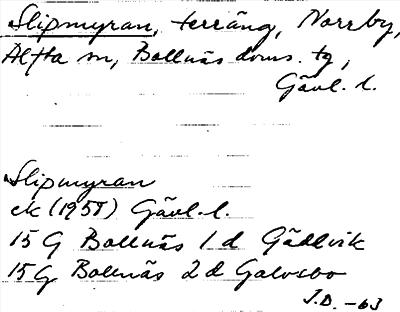 Slipmyran, terräng, Norrby,
Alfta sn, Bollnäs doms. tg,
Gävl. l.
Slipmyran
ek (1955) Gävl. l.
15 G Bollnäs 1 d Gådlvik
15 G Bollnäs 2 d Galvsbo
J.D. -63